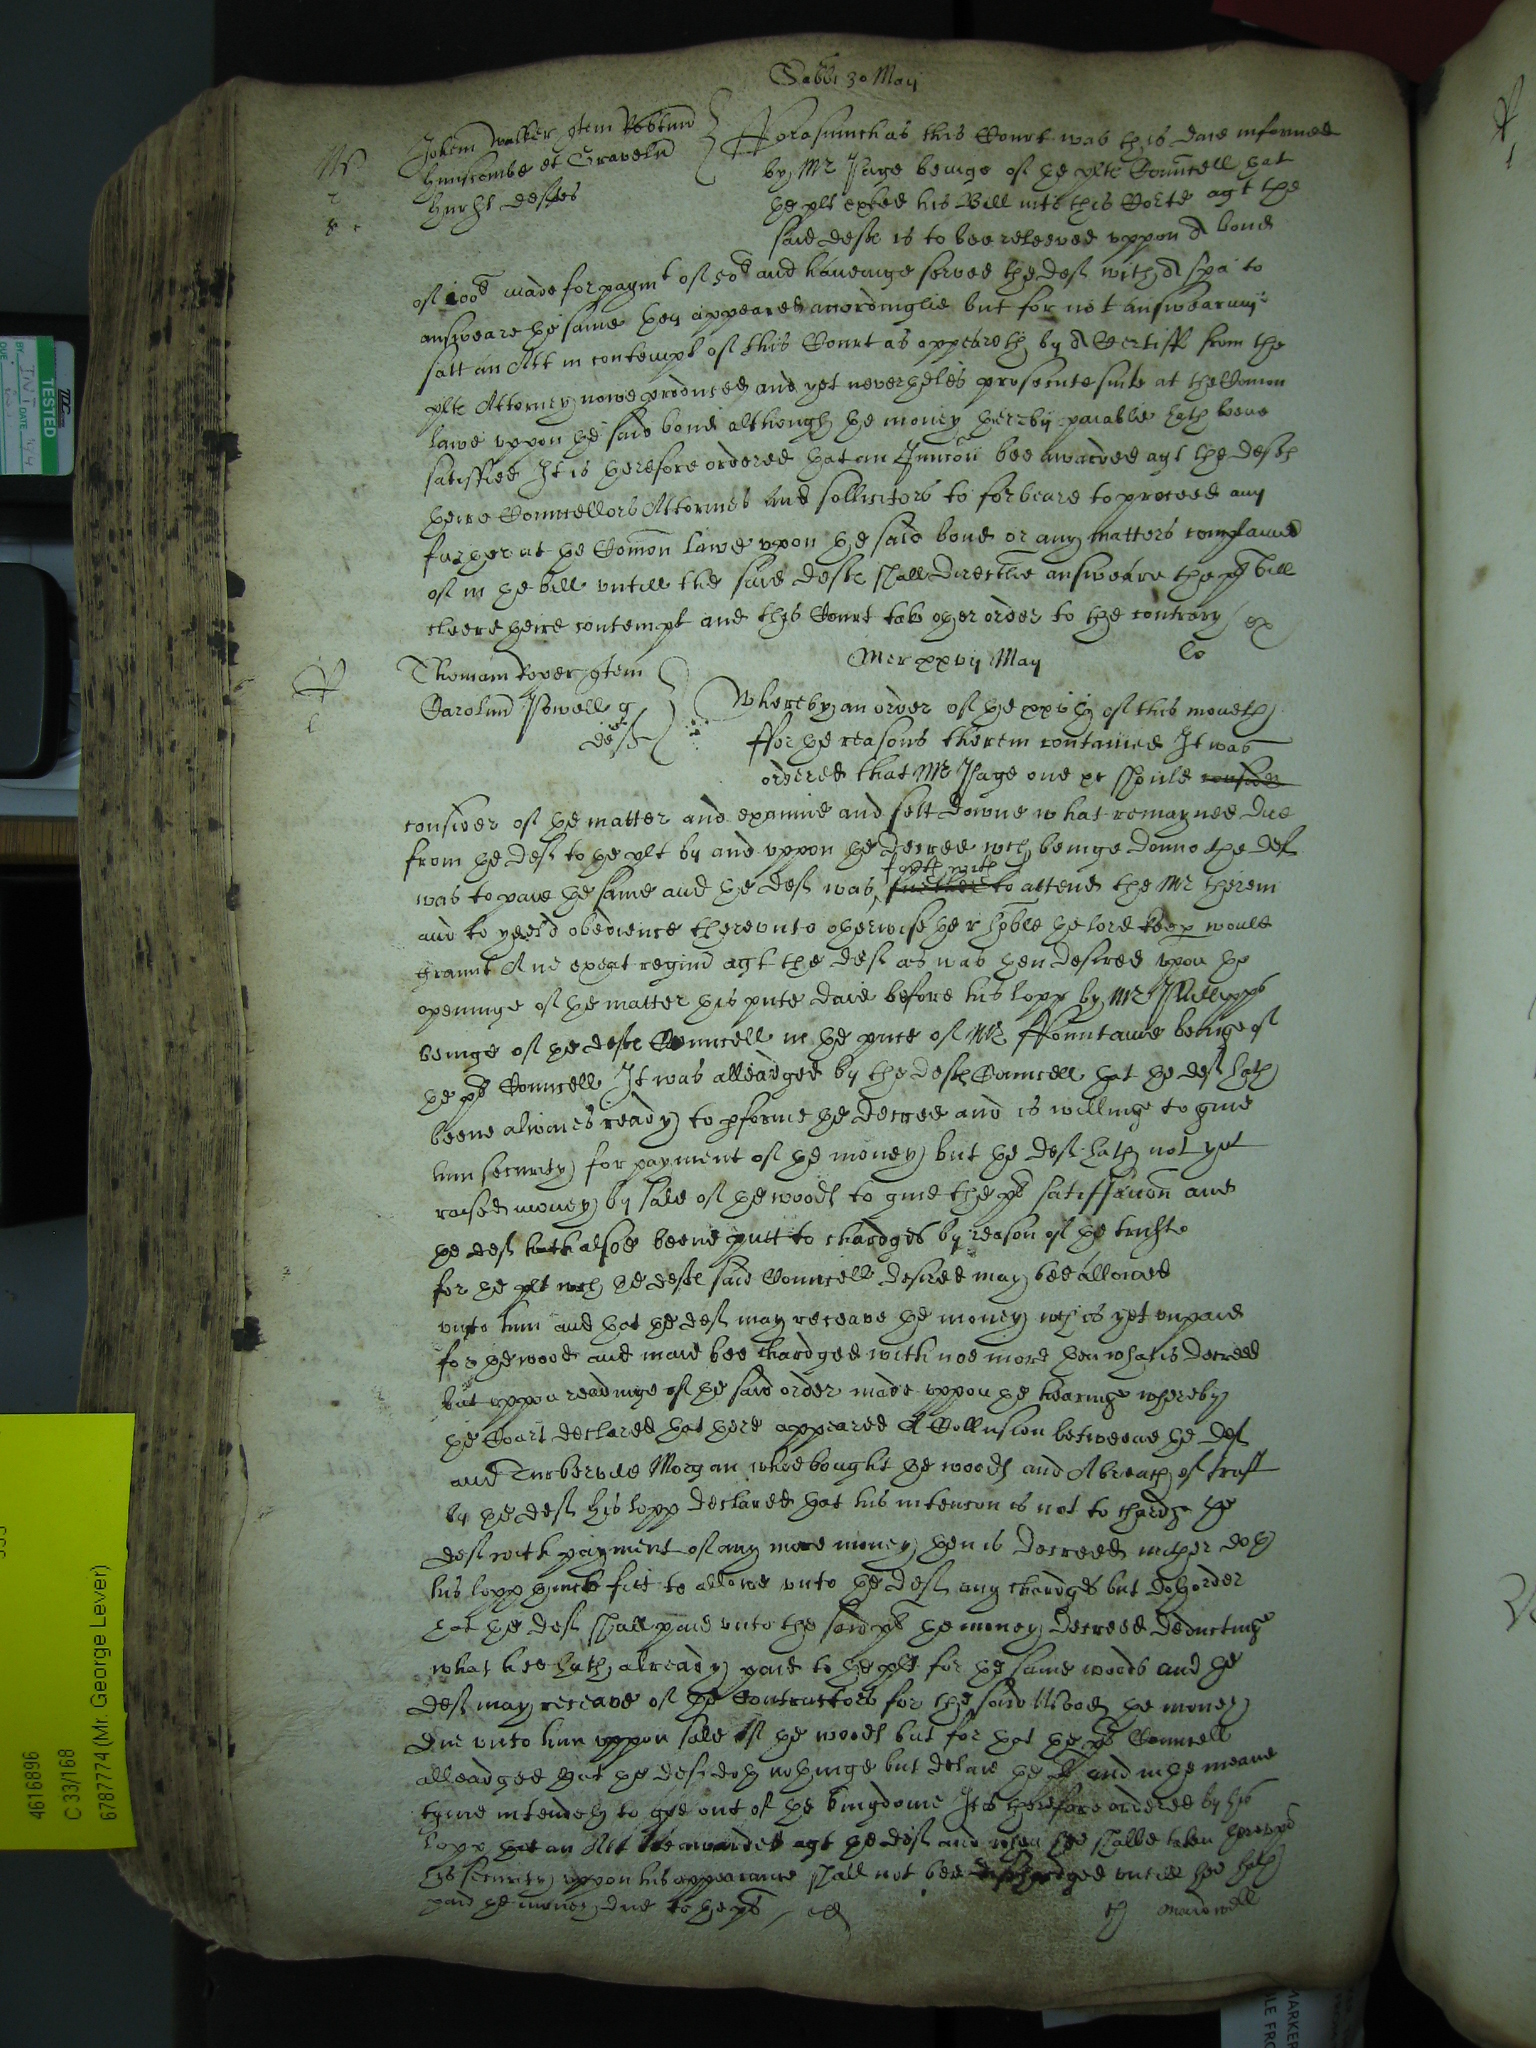 Sabbi 30 May
Johem Walker quem
Hunscombe et Gravelnd
Hurst deftes
Forasmuch as this Court was this daie informed
by Mr Page beinge of the plts Councell that
the plt exhited his Bill into this Corte agt the
said defts is to bee releeved uppon A bond
of 100l made for paymt of 50l and haveinge served the deft with A spa to
answeare the same they appeared accordinglie but for not answearing
satt an Att in contempt of this Court as appeareth by A Certiff from the
plts Attorney nowe produced and yet neverthelës prosecute suite at the Comon
lawe uppon the said bond although the money thereby paiable hath bene
satisfied It is therefore ordered that an Iniuncon bee awarded agt the defts
theire Councellors Attornies and sollicitors to forbeare to proceed any
further at the Comon Lawe upon the said bond or any matters complained
of in the bill untill the said defts shall directlie answeare the plts bill
cleere theire contempt and this Court take other order to the contrary ex
Thomam quem
Carolum Powell ar
deft
Mer xxvij May
Whereby an order of the of this moneth
ffor the reasons therein contained It was
ordered that Mr Page one &c should consider
consider of the matter and examine and sett downe what remayned due
from the deft to the plt by and uppon the decree wch beinge donn the deft
forthwith
was to paie the same and the deft was further to attend the Mr therein
and to yeeld obedience thereunto otherwise the r: honble the lord keep would
graunt A ne exeat regnu agt the deft as was then desired upon the
openinge of the matter this pnte daie before his lopp by Mr Phillipps
beinge of the defts Councell in the pnce of Mr Fountaine beinge of
the plts Councell It was alleadged by the defts Councell that the deft hath
beene alwaies ready to pforme the decree and is willinge to give
him security for payment of the money but the deft hath not yet
raised money by sale of the woods to give the plt satisfaccon and
the deft hath alsoe beene putt to chardges by reason of the truste
for the plt wch the defts said Councell desired may bee allowed
unto him and that the deft may receave the money wch is yet unpaid
for the wood and maie bee chardged with noe more then what is decreed
but uppon readinge of the said order made uppon the hearinge whereby
the Court declared that there appeared A Collusion betweene the deft
and Turbervile Morgan whoe bought the woods and A breach of trust
by the deft his lopp declared that his intencon is not to chardge the
deft with payment of any more money then is decreed neither doth
his lopp thincke fitt to allowe unto the deft any chardges but doth order
that the deft shall paie unto the said plt the money decreed deductinge
what hee hath already paid to the plt for the same woods and the
deft may receave of the Contractors for the said Woods the money
due unto him uppon sale of the woods but for that the plts Councell
alleadged that the deft doth nothinge but delaie the plt and in the meane
tyme intendeth to goe out of the kingdome It is therefore ordered by his
lopp that an Att bee awarded agt the deft and when hee shalbe taken thereupon
his security uppon his appearance shall not bee dischardged untill hee hath
paid the money due to the plt
Maidwell
TESTED
4616896
C 33/168
6787774 (Mr. George Lever)